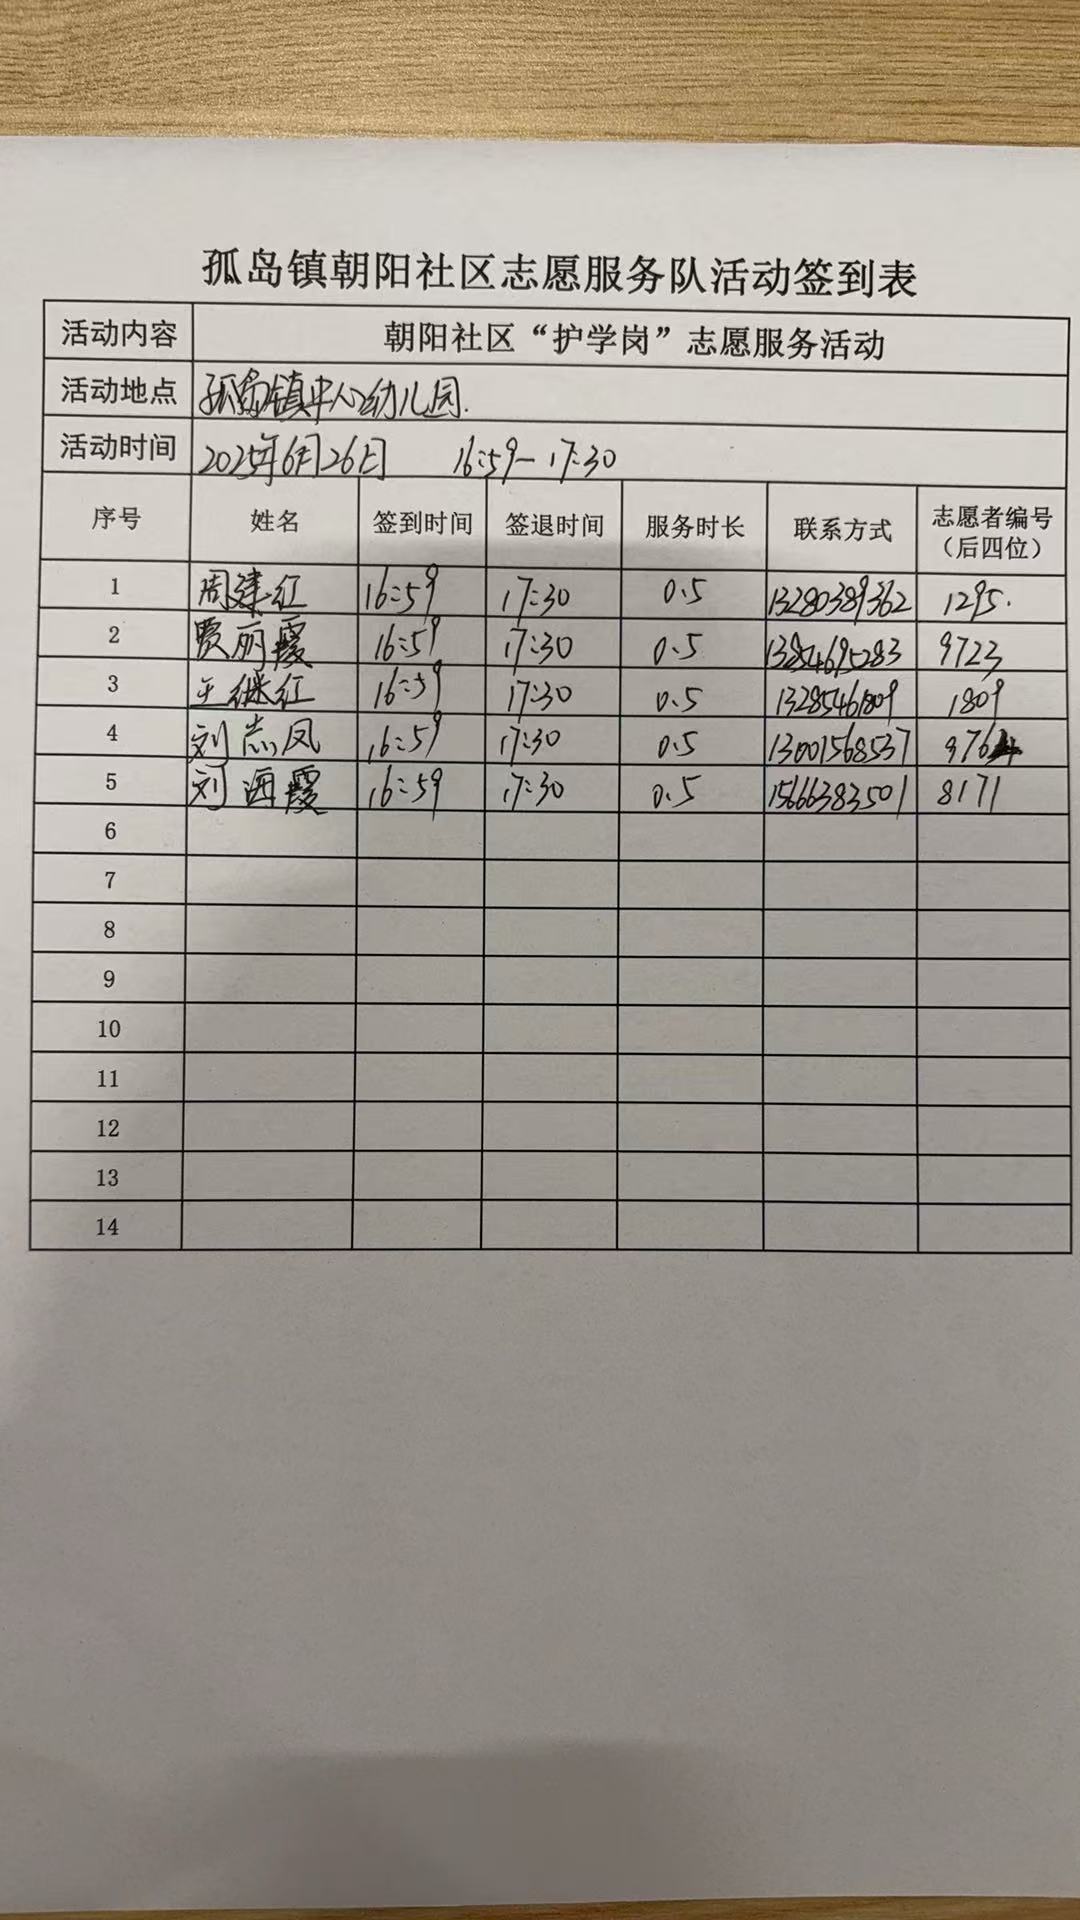 孤岛镇朝阳社区志愿服务队活动签到表
活动内容 朝阳社区“护学岗”志愿服务活动
活动地点 孤岛镇中心幼儿园.
活动时间 2025年6月26日 16:59-17:30
序号 姓名 签到时间 签退时间 服务时长 联系方式 志愿者编号（后四位）
1 周建红 16:59 17:30 0.5 13280389362 1295.
2 贾丽霞 16:59 17:30 0.5 13854695283 9723
3 王继红 16:59 17:30 0.5 13285461809 1809
4 刘志凤 16:59 17:30 0.5 13001568537
5 刘海霞 16:59 17:30 0.5 15666383501 8171
6
7
8
9
10
11
12
13
14